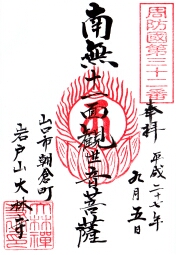 周防國第三十二番
奉拝 平成二十七年
九月五日
南無十一面観世音菩薩
山口市朝倉町
岩戸山大林寺